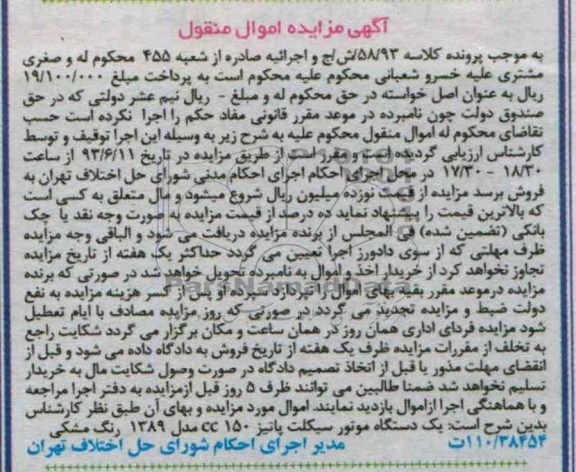 آگهی مزایده اموال منقول
به موجب پرونده کلاسه ۵۸/۹۳/ش/ج و اجرائیه صادره از شعبه ۴۵۵ محکوم له و صغری
مشتری علیه خسرو شعبانی محکوم علیه محکوم است به پرداخت مبلغ ۱۹/۱۰۰/۰۰۰
ریال به عنوان اصل خواسته در حق محکوم له و مبلغ - ریال نیم عشر دولتی که در حق
صندوق دولت چون نامبرده در موعد مقرر قانونی مفاد حکم را اجرا نکرده است حسب
تقاضای محکوم له اموال منقول محکوم علیه به شرح زیر به وسیله این اجرا توقیف و توسط
کارشناس ارزیابی گردیده است و مقرر است از طریق مزایده در تاریخ ۹۳/۶/۱۱ از ساعت
۱۸/۳۰ - ۱۷/۳۰ در محل اجرای احکام اجرای احکام مدنی شورای حل اختلاف تهران به
فروش برسد مزایده از قیمت نوزده میلیون ریال شروع میشود و مال متعلق به کسی است
که بالاترین قیمت را پیشنهاد نماید ده درصد از قیمت مزایده به صورت وجه نقد یا چک
بانکی (تضمین شده) فی المجلس از برنده مزایده دریافت می شود و الباقی وجه مزایده
ظرف مهلتی که از سوی دادورز اجرا تعیین می گردد حداکثر یک هفته از تاریخ مزایده
تجاوز نخواهد کرد از خریدار اخذ و اموال به نامبرده تحویل خواهد شد در صورتی که برنده
مزایده درموعد مقرر بقیه بهای اموال را نپردازد سپرده او پس از کسر هزینه مزایده به نفع
دولت ضبط و مزایده تجدید می گردد در صورتی که روز مزایده مصادف با ایام تعطیل
شود مزایده فردای اداری همان روز در همان ساعت و مکان برگزار می گردد شکایت راجع
به تخلف از مقررات مزایده ظرف یک هفته از تاریخ فروش به دادگاه داده می شود و قبل از
انقضای مهلت مذور یا قبل از اتخاذ تصمیم دادگاه در صورت وصول شکایت مال به خریدار
تسلیم نخواهد شد ضمنا طالبین می توانند ظرف ۵ روز قبل ازمزایده به دفتر اجرا مراجعه
و با هماهنگی اجرا ازاموال بازدید نمایند. اموال مورد مزایده و بهای آن طبق نظر کارشناس
بدین شرح است: یک دستگاه موتور سیکلت پانیز ۱۵۰ cc مدل ۱۳۸۹ رنگ مشکی
۱۱۰/۳۸۴۵۴ت مدیر اجرای احکام شورای حل اختلاف تهران
ParsNamadData